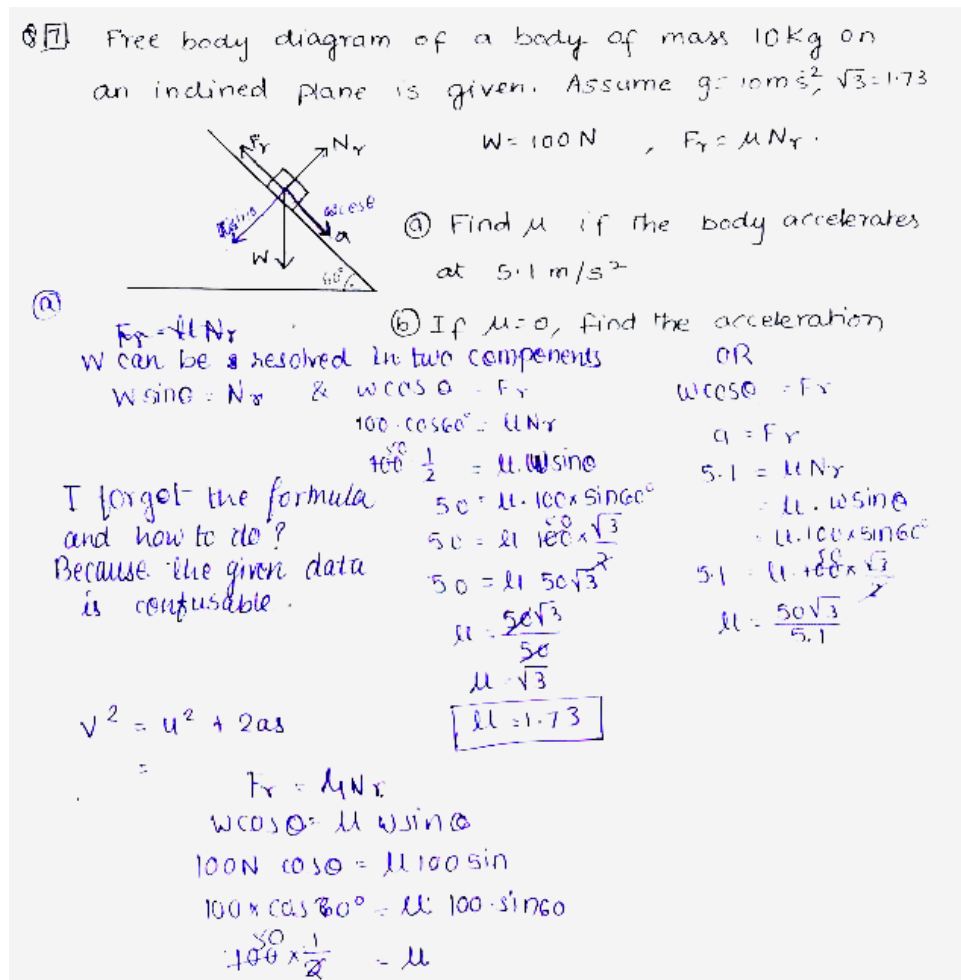 Q 7 Free body diagram of a body of mass 10kg on
an inclined plane is given. Assume g = 10ms², √3=1.73
W = 100 N , Fr = μNr.
Fr
Nr
wcosθ
a
W
60°
(a) Find μ if the body accelerates
at 5.1 m/s²
(b) If μ=0, find the acceleration
(a)
Fr = μNr
W can be resolved in two components
W sinθ = Nr & wcosθ = Fr
100 · cos60° = μNr
100 50 1/2 = μ. W sinθ
50 = μ. 100 x sin60°
50 = μ 100 50 x √3/2
50 = μ 50√3
μ = 50√3/50
μ = √3
μ = 1.73
OR
wcosθ = Fr
a = Fr
5.1 = μNr
= μ. wsinθ
= μ. 100 x sin60°
5.1 = μ. 100 50 x √3/2
μ = 50√3/5.1
I forgot the formula
and how to do?
Because the given data
is confusable.
v² = u² + 2as
=
Fr = μNr
wcosθ = μ wsinθ
100N cosθ = μ 100 sin
100 x cos 60° = μ 100 · sin60
100 50 x 1/2 = μ